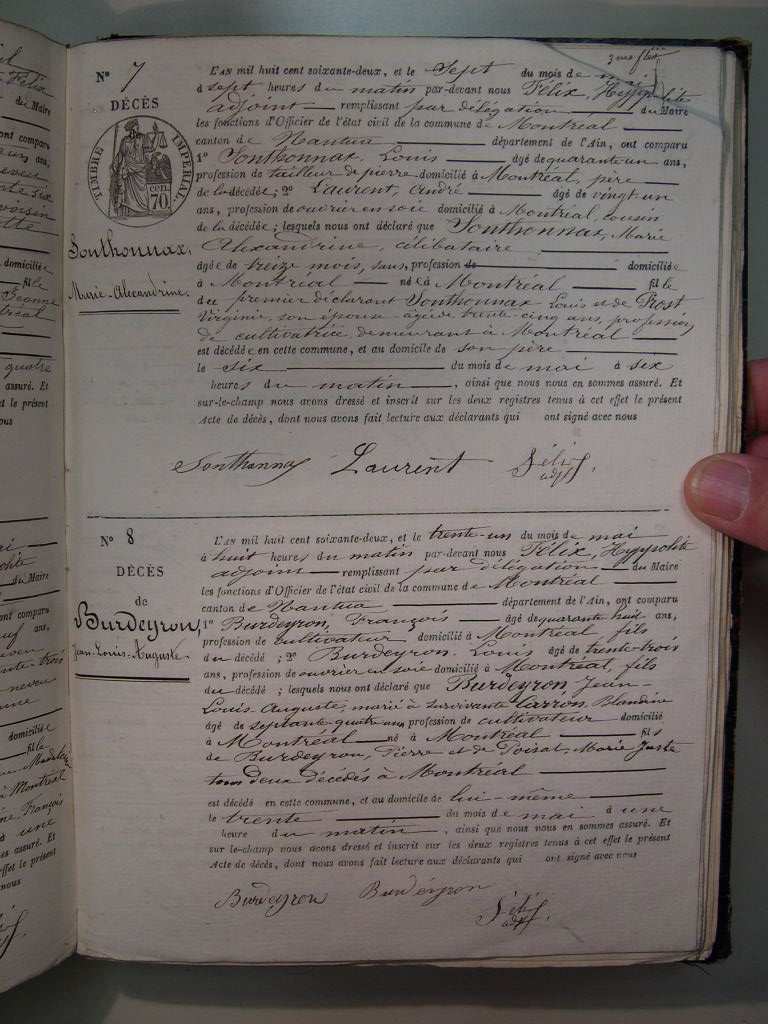 3me flet
N° 7
DÉCÈS
de
TIMBRE IMPÉRIAL
70 cen.
Sonthonnax,
Marie-Alexandrine.
L'AN mil huit cent soixante-deux, et le Sept du mois de mai
à sept heures du matin par-devant nous Félix, Hyppolite
adjoint remplissant par délégation du Maire
les fonctions d'Officier de l'état civil de la commune de Montréal
canton de Nantua département de l'Ain, ont comparu
1° Sonthonnax, Louis âgé de quarante un ans,
profession de tailleur de pierre domicilié à Montréal, père
de la décédée; 2° Laurent, André âgé de vingt-un
ans, profession de ouvrier en soie domicilié à Montréal, cousin
de la décédée; lesquels nous ont déclaré que Sonthonnax, Marie
Alexandrine, célibataire
âgée de treize mois, sans, profession de domiciliée
à Montréal née à Montréal fille
du premier déclarant Sonthonnax Louis et de Prost
Virginie, son épouse âgée de trente-cinq ans, profession
de cultivatrice demeurant à Montréal
est décédée en cette commune, et au domicile de son père
le six du mois de mai à six
heures du matin, ainsi que nous nous en sommes assuré. Et
sur-le-champ nous avons dressé et inscrit sur les deux registres tenus à cet effet le présent
Acte de décès, dont nous avons fait lecture aux déclarants qui ont signé avec nous
Sonthonnax Laurent Félix
adjt
N° 8
DÉCÈS
de
Burdeyron,
Jean-Louis-Auguste.
L'AN mil huit cent soixante-deux, et le trente-un du mois de mai
à huit heures du matin par-devant nous Félix, Hyppolite
adjoint remplissant par délégation du Maire
les fonctions d'Officier de l'état civil de la commune de Montréal
canton de Nantua département de l'Ain, ont comparu
1° Burdeyron, François âgé de quarante huit ans,
profession de cultivateur domicilié à Montréal, fils
du décédé; 2° Burdeyron, Louis âgé de trente-trois
ans, profession de ouvrier en soie domicilié à Montréal, fils
du décédé; lesquels nous ont déclaré que Burdeyron, Jean-
Louis-Auguste, marié à survivante Carron, Blandine
âgé de septante-quatre ans profession de cultivateur domicilié
à Montréal né à Montréal fils
de Burdeyron, Pierre et de Poisat, Marie Juste
tous deux décédés à Montréal
est décédé en cette commune, et au domicile de lui-même
le trente du mois de mai à une
heure du matin, ainsi que nous nous en sommes assuré. Et
sur le-champ nous avons dressé et inscrit sur les deux registres tenus à cet effet le présent
Acte de décès, dont nous avons fait lecture aux déclarants qui ont signé avec nous
Burdeyron Burdeyron Félix
adjt